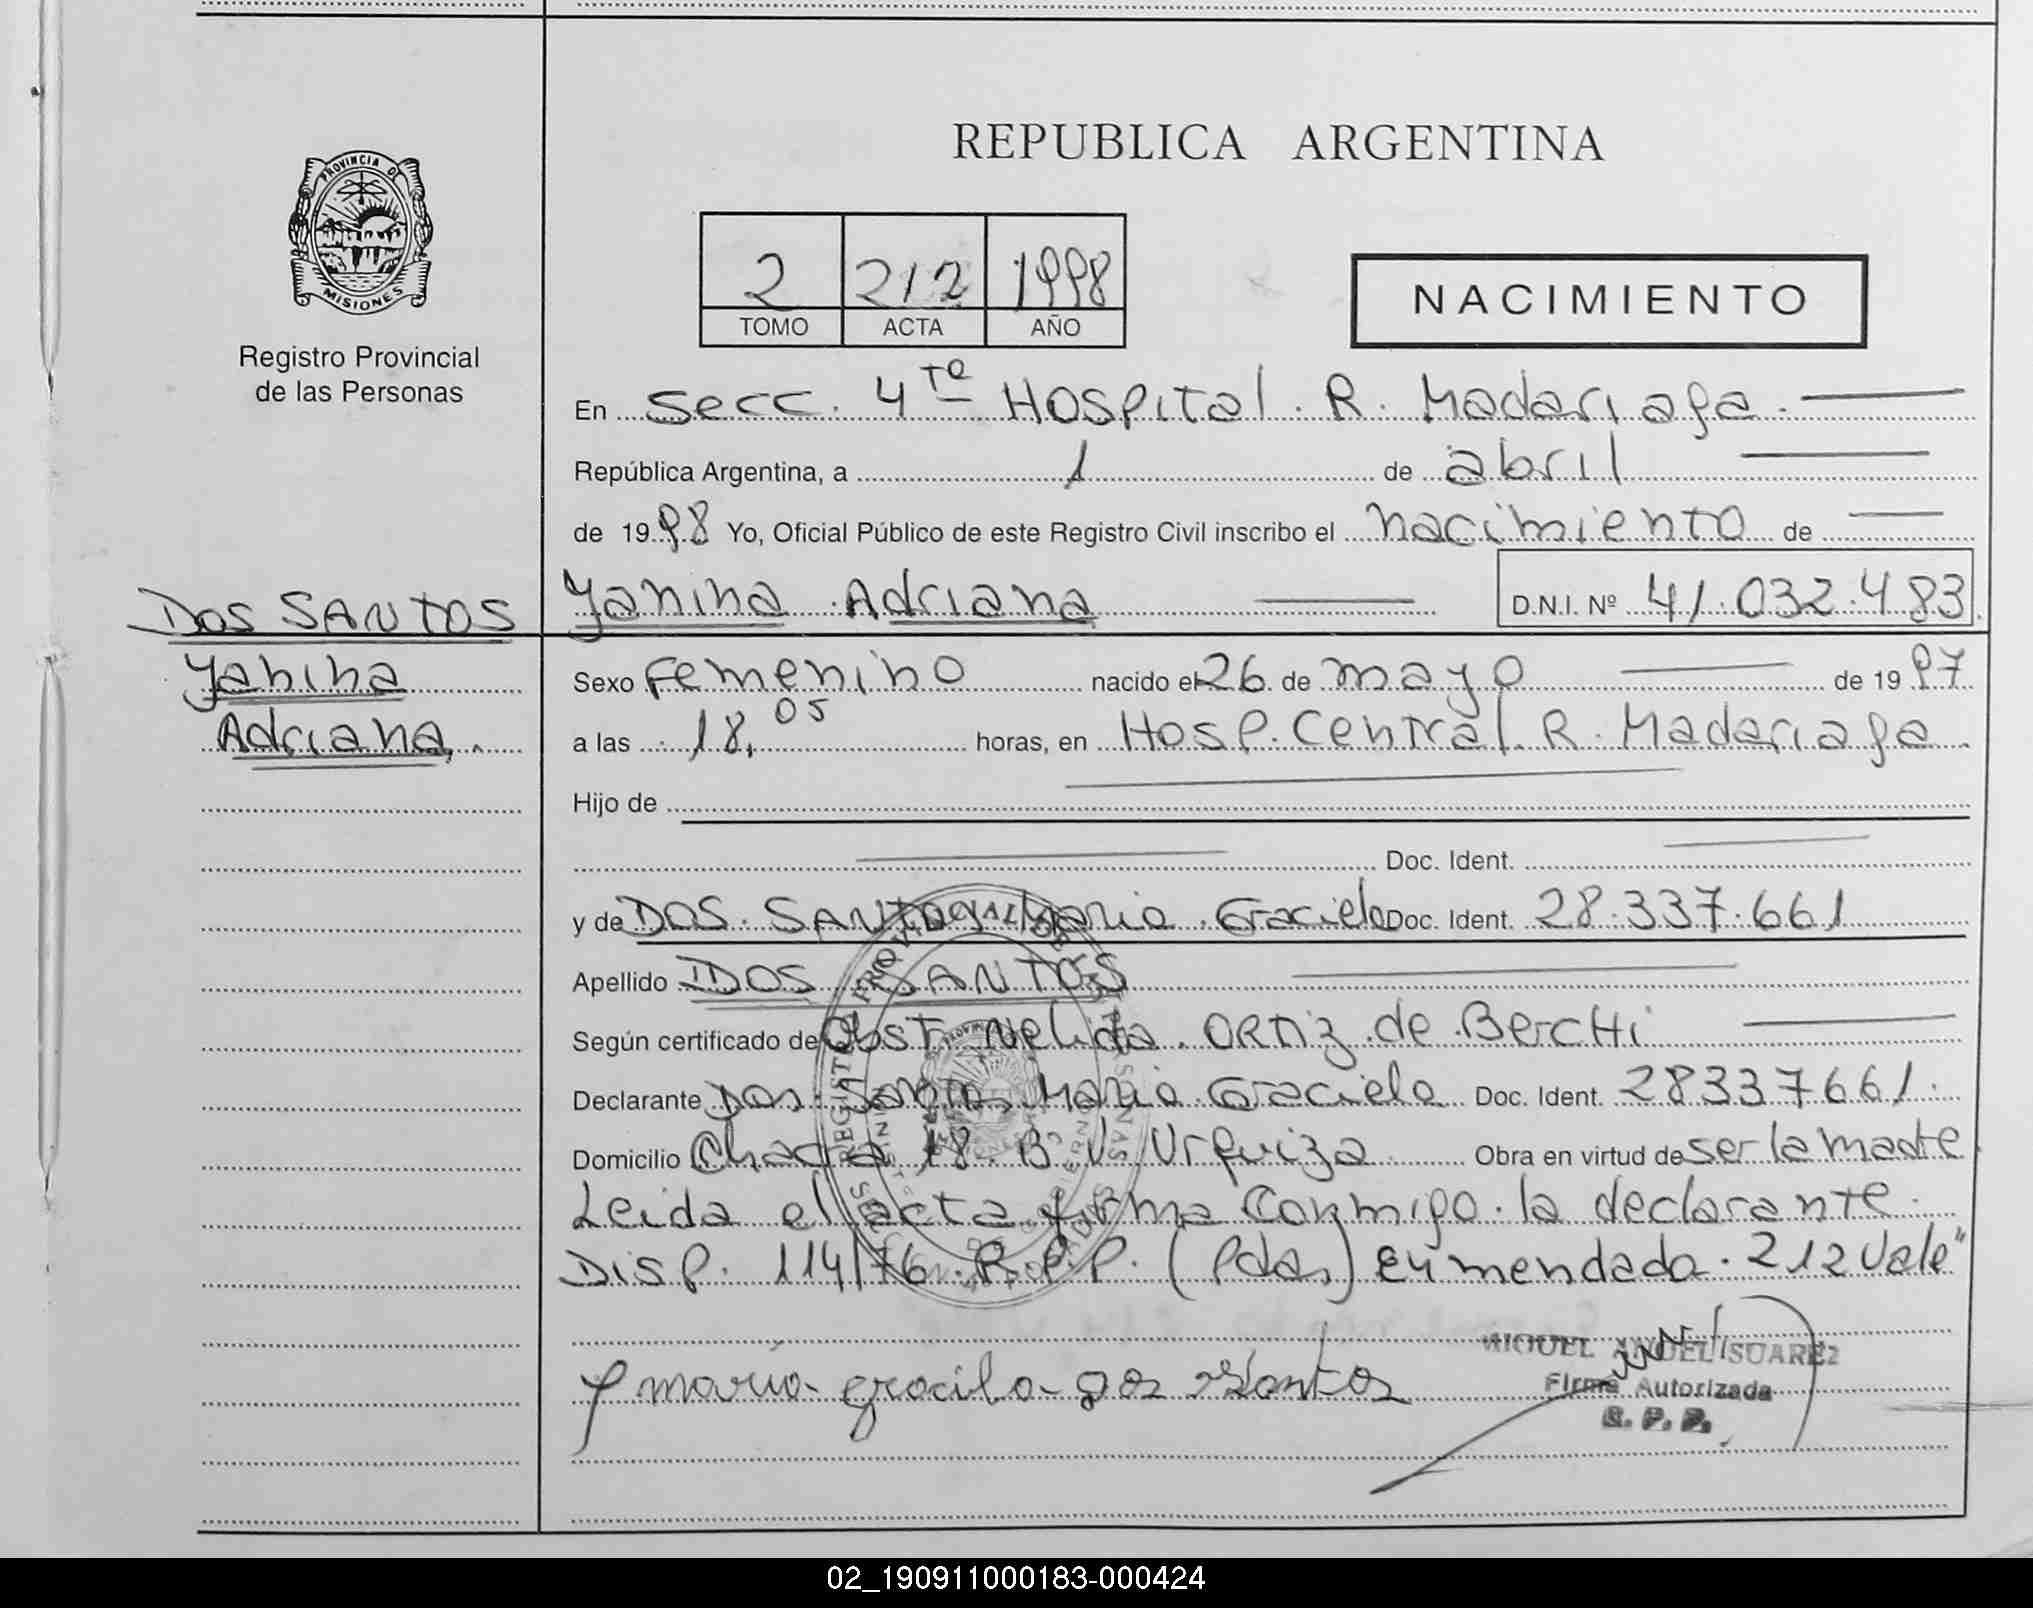 REPUBLICA ARGENTINA
PROVINCIA DE
MISIONES
Registro Provincial
de las Personas
2 212 1998
TOMO ACTA AÑO
NACIMIENTO
En secc. 4ta Hospital. R. Madariaga.
República Argentina, a 1 de abril
de 1998 Yo, Oficial Público de este Registro Civil inscribo el nacimiento de
DOS SANTOS
Yanina Adriana D.N.I. Nº 41.032.483
Yanina
Adriana
Sexo Femenino nacido el 26 de mayo de 1997
a las 18,05 horas, en Hosp. Central R. Madariaga
Hijo de
Doc. Ident.
y de DOS SANTOS Maria Graciela Doc. Ident. 28.337.661
Apellido DOS SANTOS
Según certificado de Obst. Nelida ORTIZ de BercHi
Declarante Dos Santos Maria Graciela Doc. Ident. 28337661.
Domicilio Chacra 18 Bº U. Urquiza Obra en virtud de ser la madre
Leida el acta firma conmigo la declarante.
Disp. 114/76 R.P.P. (Pdas) Enmendada. 212 Vale"
MIGUEL ANGEL SUAREZ
Firma Autorizada
R. P. P.
maria gracila dos santos
02_190911000183-000424